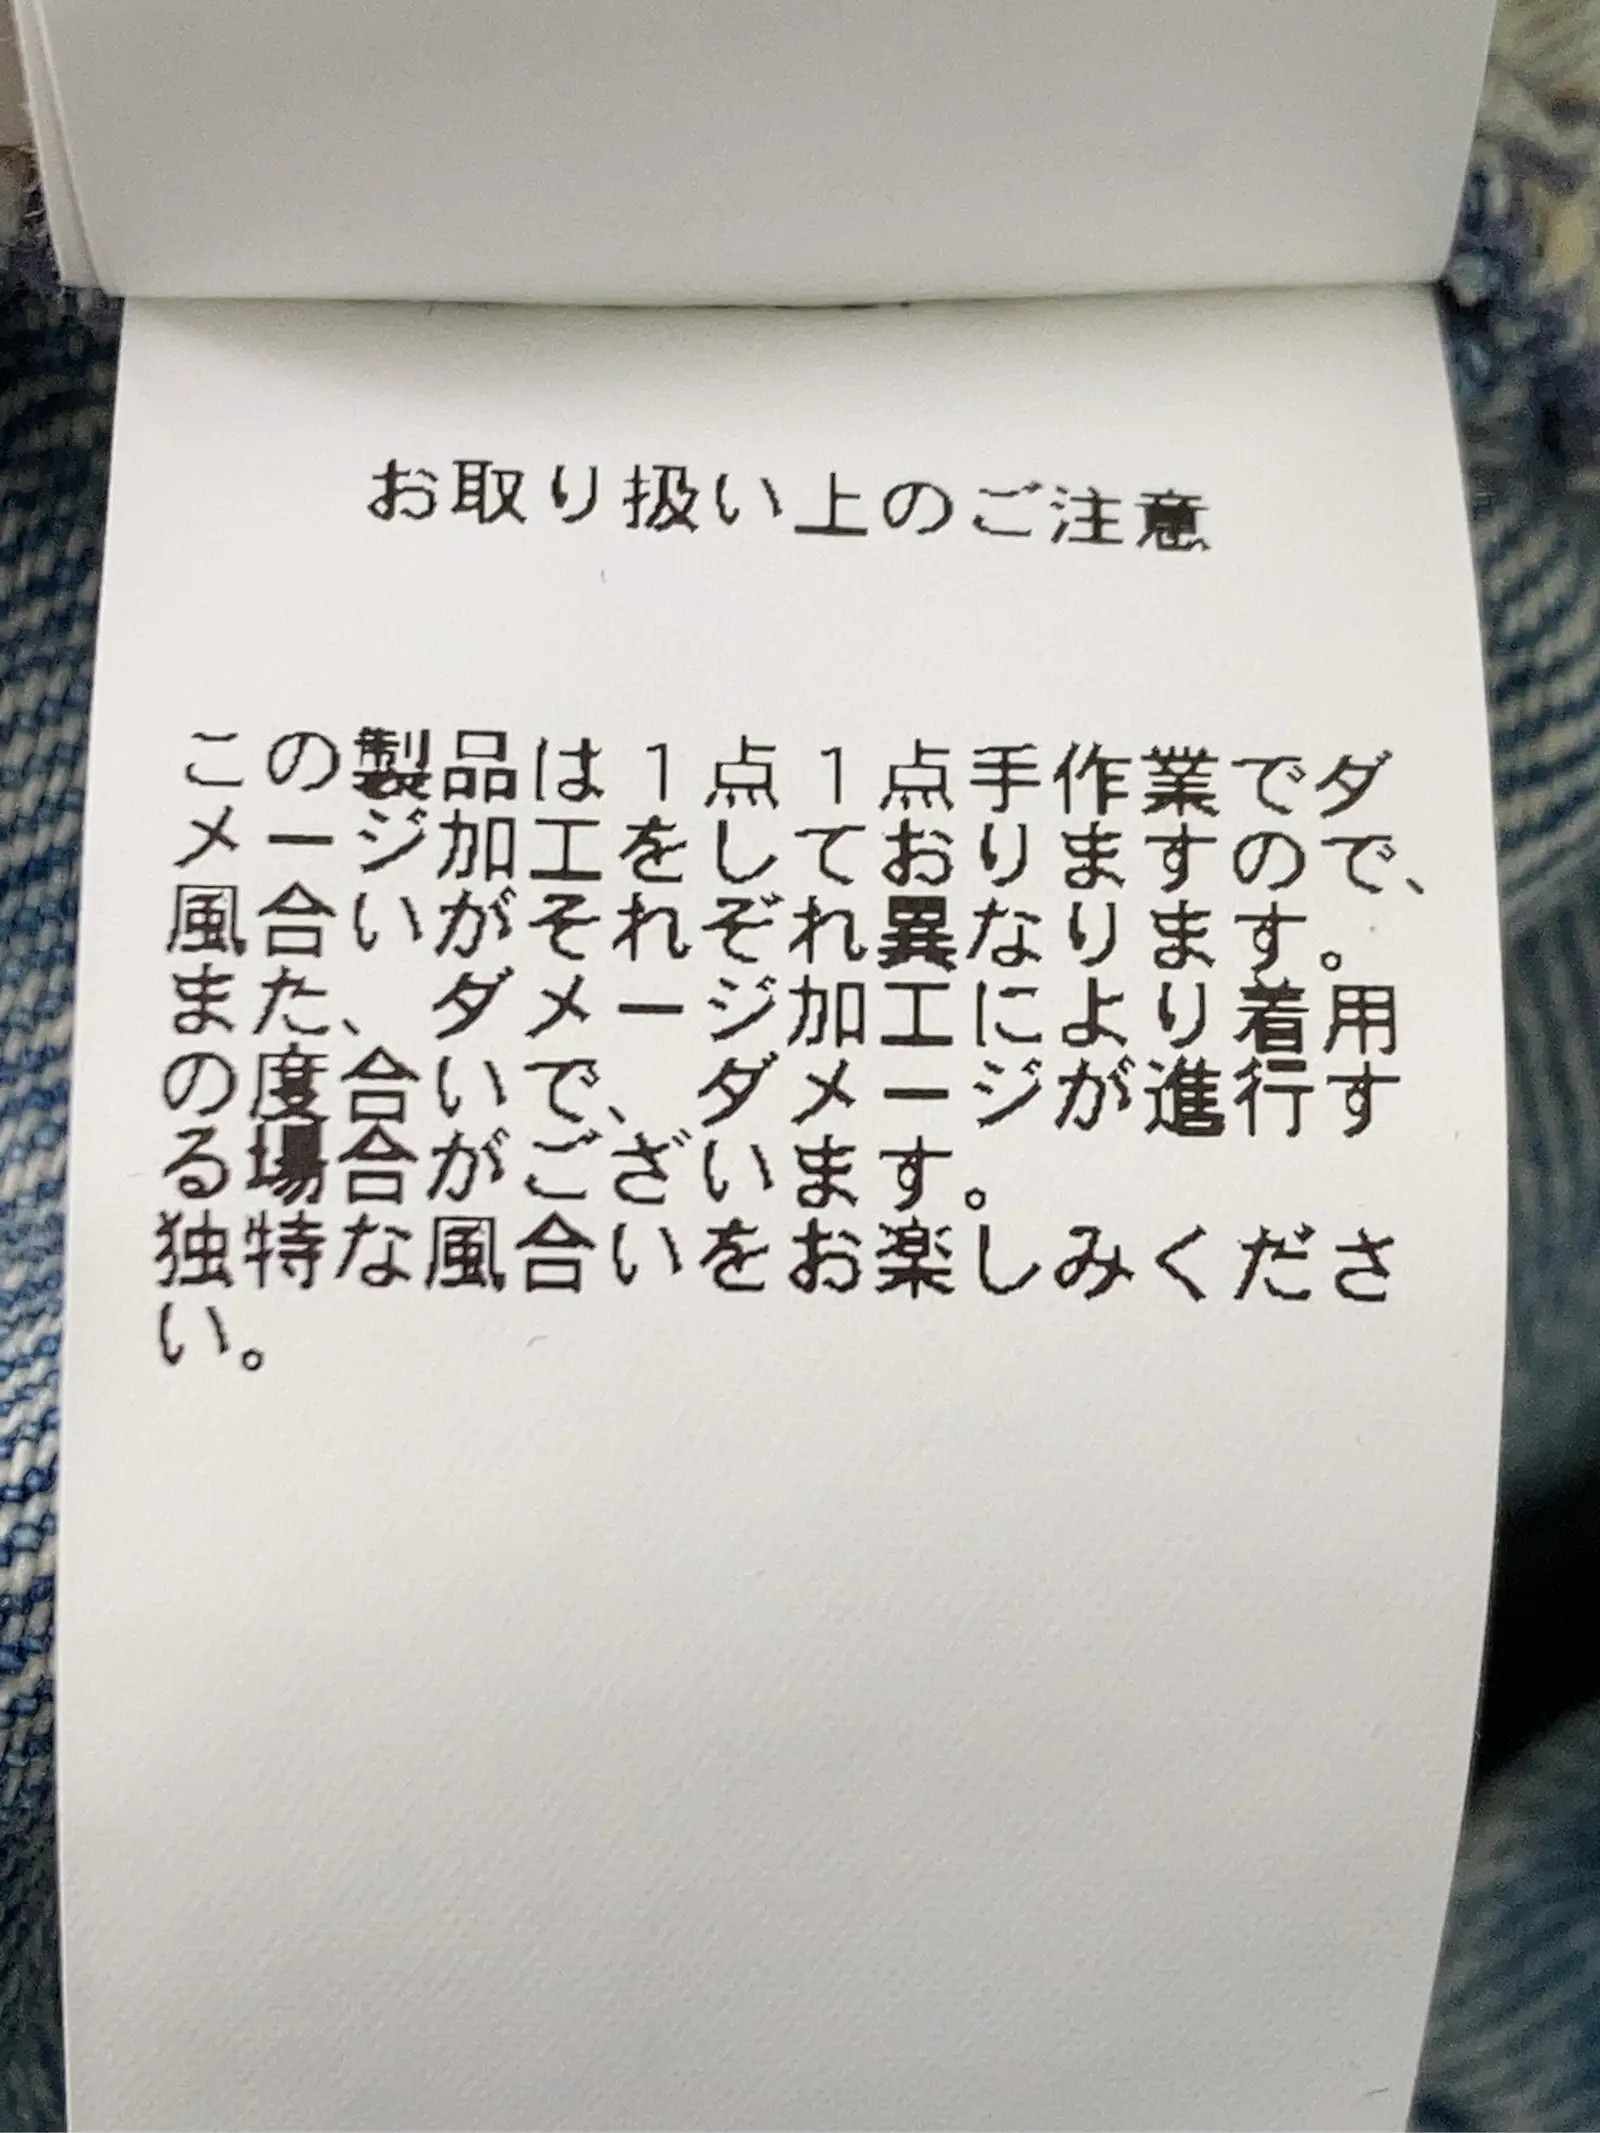 お取り扱い上のご注意
この製品は１点１点手作業でダ
メージ加工をしておりますので、
風合いがそれぞれ異なります。
また、ダメージ加工により着用
の度合いで、ダメージが進行す
る場合がございます。
独特な風合いをお楽しみくださ
い。